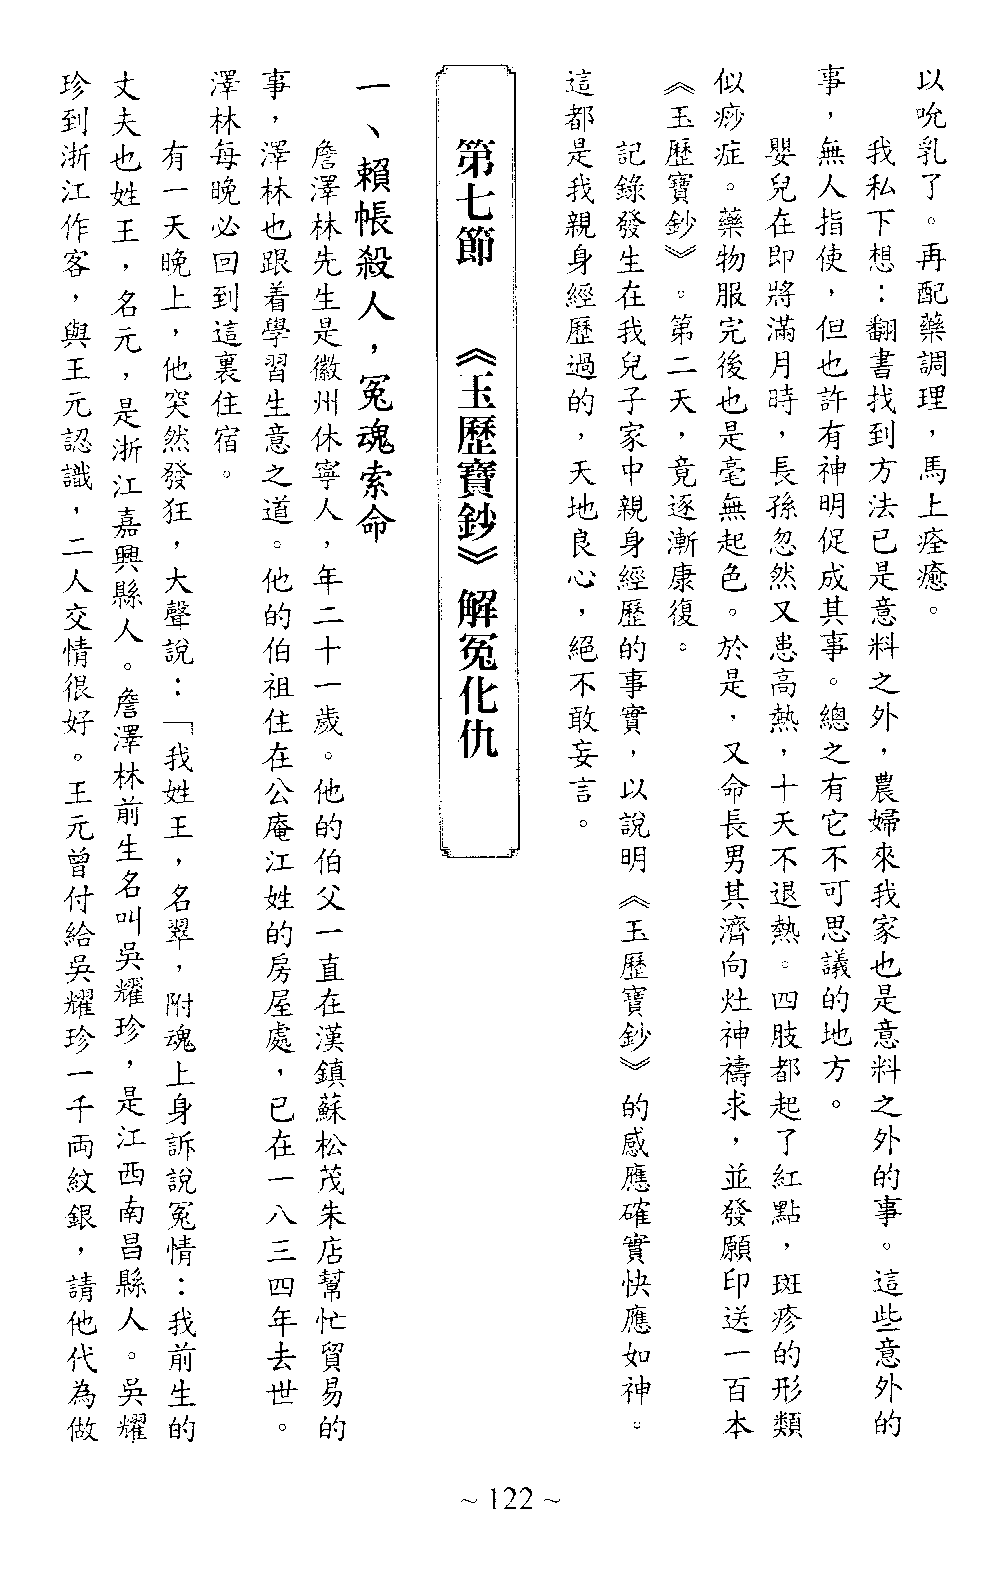 以吮乳了。再配藥調理，馬上痊癒。
我私下想：翻書找到方法已是意料之外，農婦來我家也是意料之外的事。這些意外的
事，無人指使，但也許有神明促成其事。總之有它不可思議的地方。
嬰兒在即將滿月時，長孫忽然又患高熱，十天不退熱。四肢都起了紅點，斑疹的形類
似痧症。藥物服完後也是毫無起色。於是，又命長男其濟向灶神禱求，並發願印送一百本
《玉歷寶鈔》。第二天，竟逐漸康復。
記錄發生在我兒子家中親身經歷的事實，以說明《玉歷寶鈔》的感應確實快應如神。
這都是我親身經歷過的，天地良心，絕不敢妄言。
第七節　《玉歷寶鈔》解冤化仇
一、賴帳殺人，冤魂索命
詹澤林先生是徽州休寧人，年二十一歲。他的伯父一直在漢鎮蘇松茂朱店幫忙貿易的
事，澤林也跟着學習生意之道。他的伯祖住在公庵江姓的房屋處，已在一八三四年去世。
澤林每晚必回到這裏住宿。
有一天晚上，他突然發狂，大聲說：「我姓王，名翠，附魂上身訴說冤情：我前生的
丈夫也姓王，名元，是浙江嘉興縣人。詹澤林前生名叫吳耀珍，是江西南昌縣人。吳耀
珍到浙江作客，與王元認識，二人交情很好。王元曾付給吳耀珍一千両紋銀，請他代為做
~ 122 ~